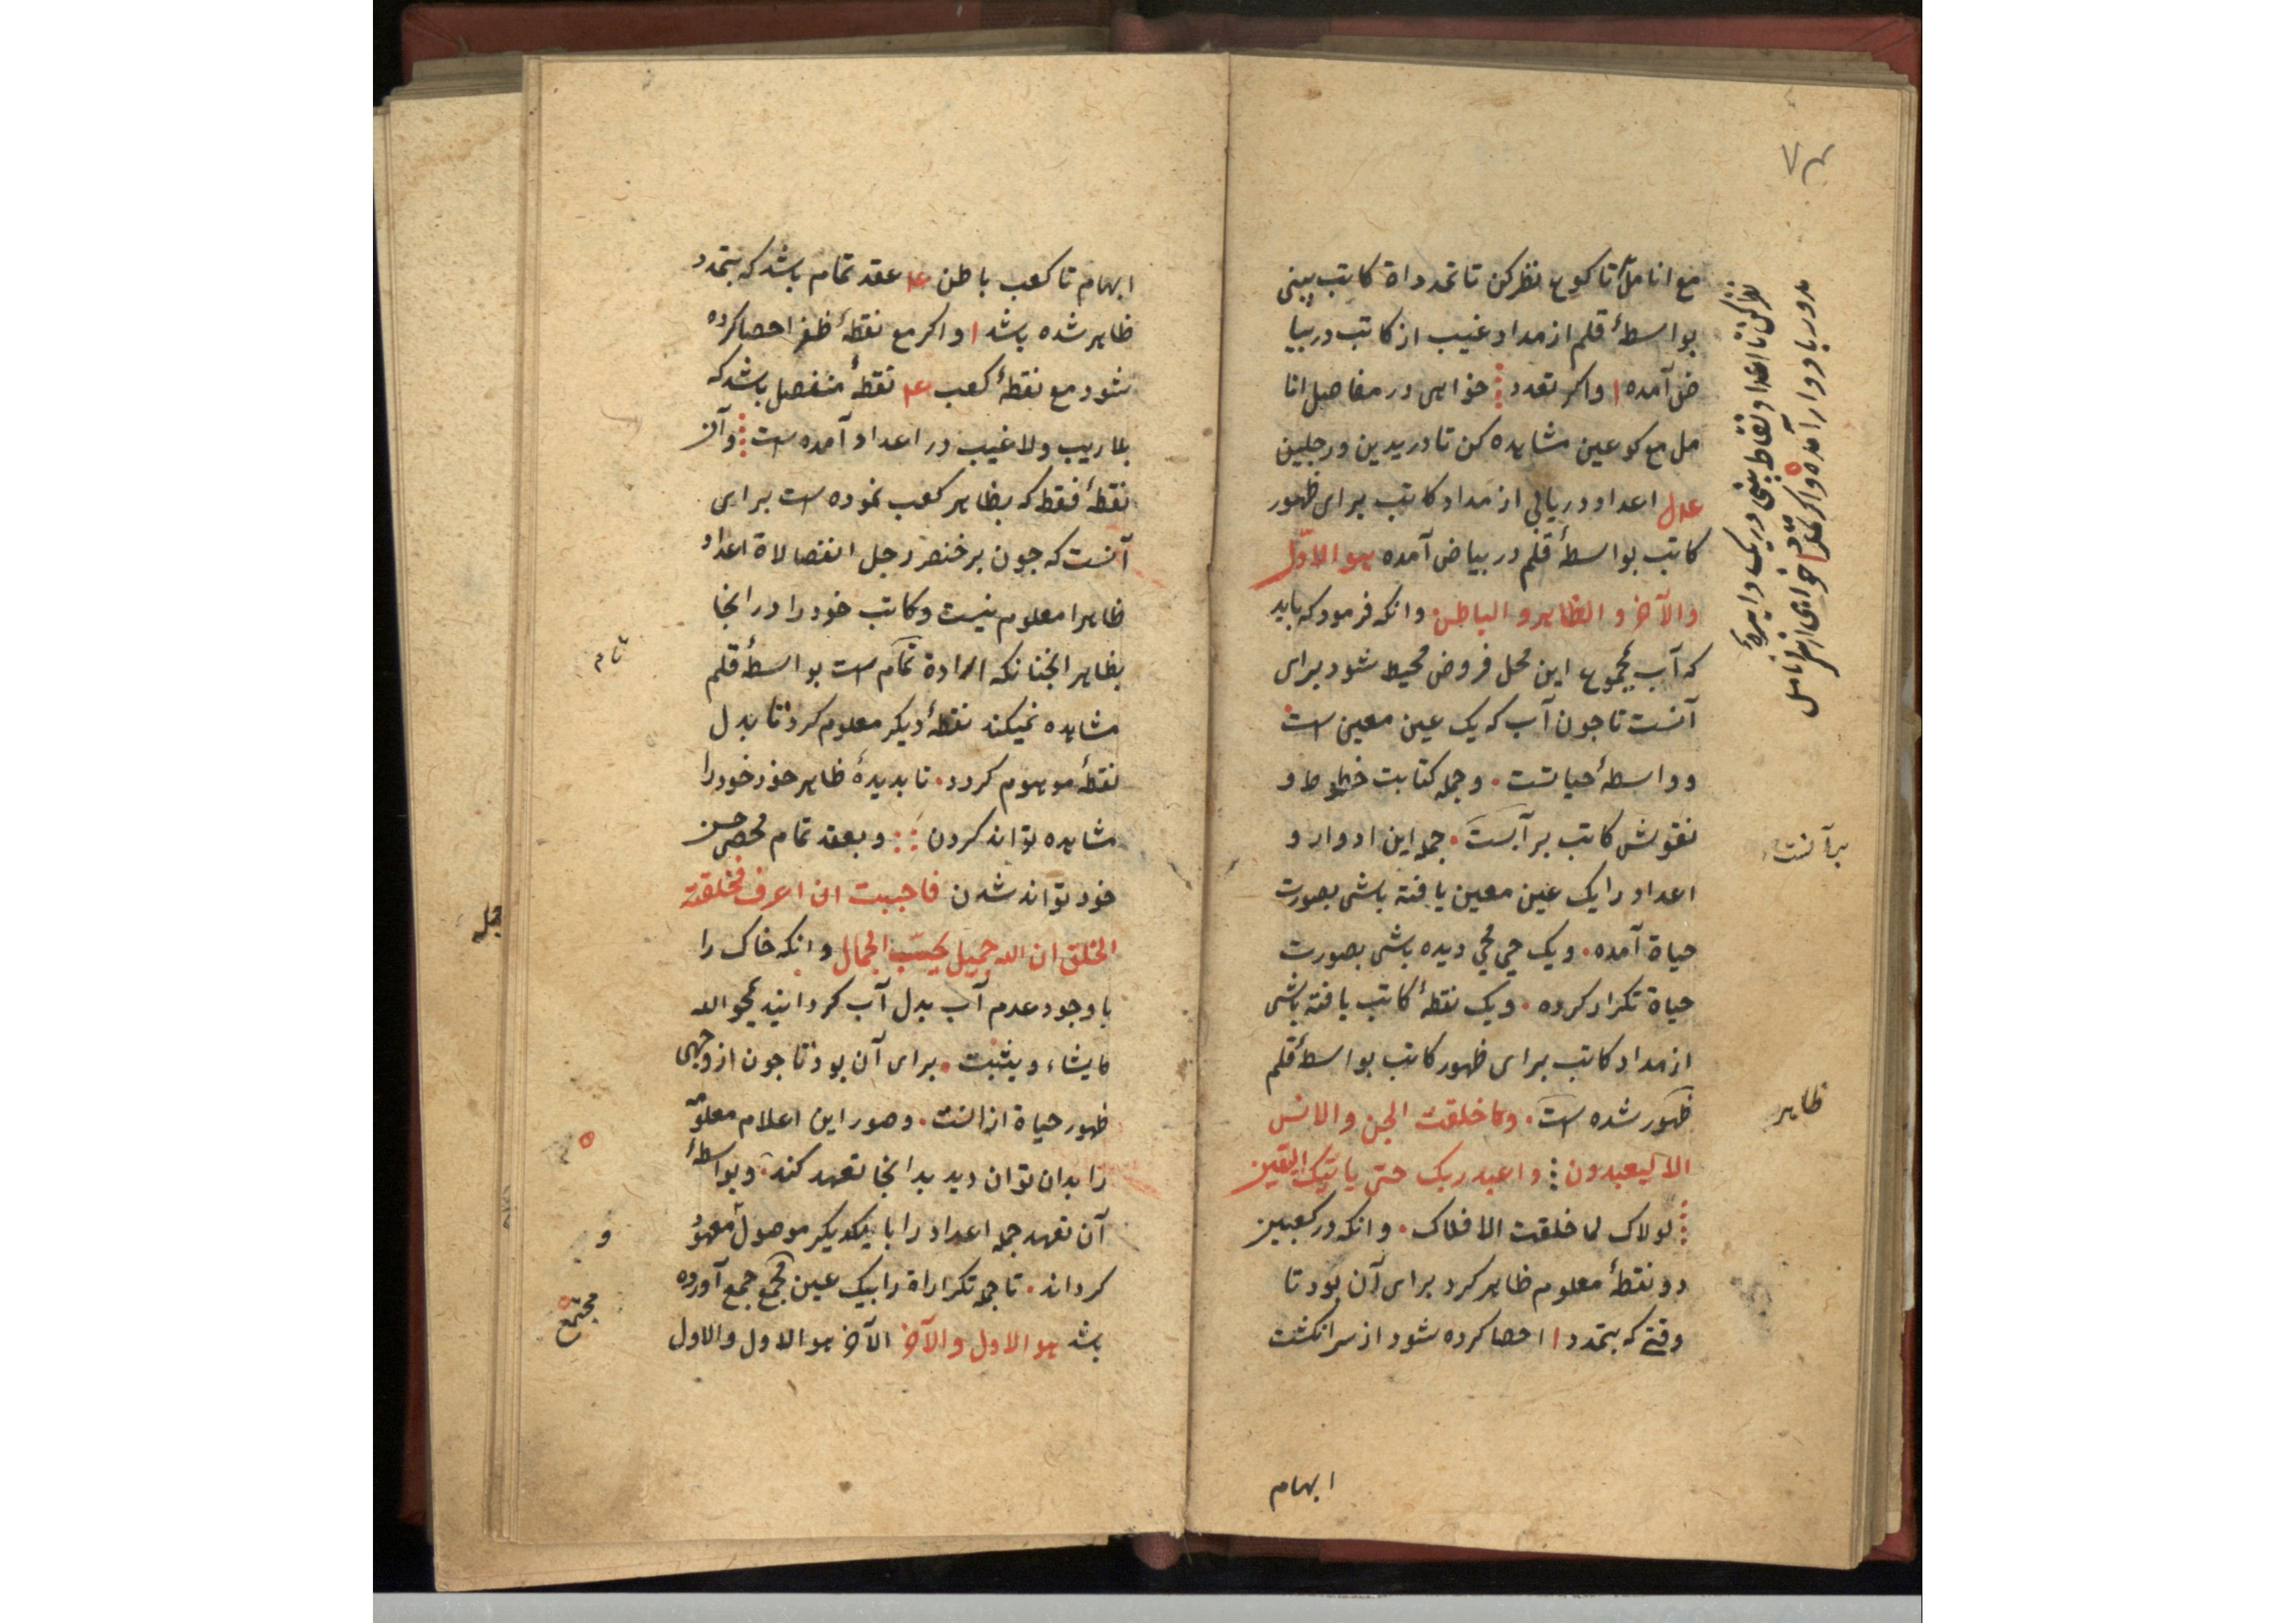 مع اناملّ تا کوع نظر کن تا تمدداة کاتب بینی
بواسطهٔ قلم از مداد غیب از کاتب در بیا
ض آمده ا واکر تعدد خواهی در مفاصل انا
مل مع کوعین مشاهده کن تا در یدین ورجلین
اعداد دریایی از مداد کاتب برای ظهور
کاتب بواسطهٔ قلم در بیاض آمده هو الاوّل
والآخر و الظاهر و الباطن وانکه فرمود که باید
که آب بمجموع این محل فروض محیط شود برای
آنست تا جون آب که یک عین معین است
و واسطهٔ حیاتست وجمله کتابت خطوط و
نقوش کاتب بر آبست جمله این ادوار و
اعداد را یک عین معین یافته باشی بصورت
حیاة آمده ویک حی محی دیده باشی بصورت
حیاة تکرار کرده ویک نقطهٔ کاتب یافته باشی
از مداد کاتب برای ظهور کاتب بواسطهٔ قلم
ظهور شده است وما خلقت الجن والانس
الا لیعبدون واعبد ربک حتی یاتیک الیقین
لولاک لما خلقت الافلاک وانکه در کعبین
دو نقطهٔ معلوم ظاهر کرد برای آن بود تا
وقتی که بتمدد ا احصا کرده شود از سر انکشت
ابهام
نظر کن تا اعداد نقاط بینی در یک دایرهٔ
مدور با دوار آمده واکر خواهی از سر انامل
برآنست
ظاهر
ابهام تا کعب باطن عقد تمام باشد که بتمدد
ظاهر شده باشد ا واکر مع نقطهٔ ظفر احصا کرده
شود مع نقطهٔ کعب نقطهٔ منفصل باشد که
بلا ریب ولا غیب در اعداد آمده است وآن
نقطهٔ فقط که بظاهر کعب نموده است برای
آنست که جون بر خنصر رجل انفصالاة اعداد
ظاهرا معلوم نیست وکاتب خود را در انجا
بظاهر انجنانکه ارادة تمام است بواسطهٔ قلم
مشاهده نمیکند نقطهٔ دیکر معلوم کرد تا بدل
نقطهٔ موهوم کردد تا بدیدهٔ ظاهر خود خود را
مشاهده تواند کردن وبعقد تمام محصی حسن
خود تواند شدن فاحببت ان اعرف فخلقت
الخلق ان الله جمیل یحبّ الجمال وانکه خاک را
با وجود عدم آب بدل آب کردانید یمحو الله
ما یشاء ویثبت برای آن بود تا جون از وجهی
ظهور حیاة ازانست وصور این اعلام معلومه
را بدان توان دید بدانجا تعهد کند وبواسطهٔ
آن تعهد جمله اعداد را با یکدیکر موصول معهو
کرداند تا جمله تکراراة را بیک عین مجمع جمع آورده
باشد هو الاول والآخر الآخر هو الاول والاول
تام
و
مجتمع